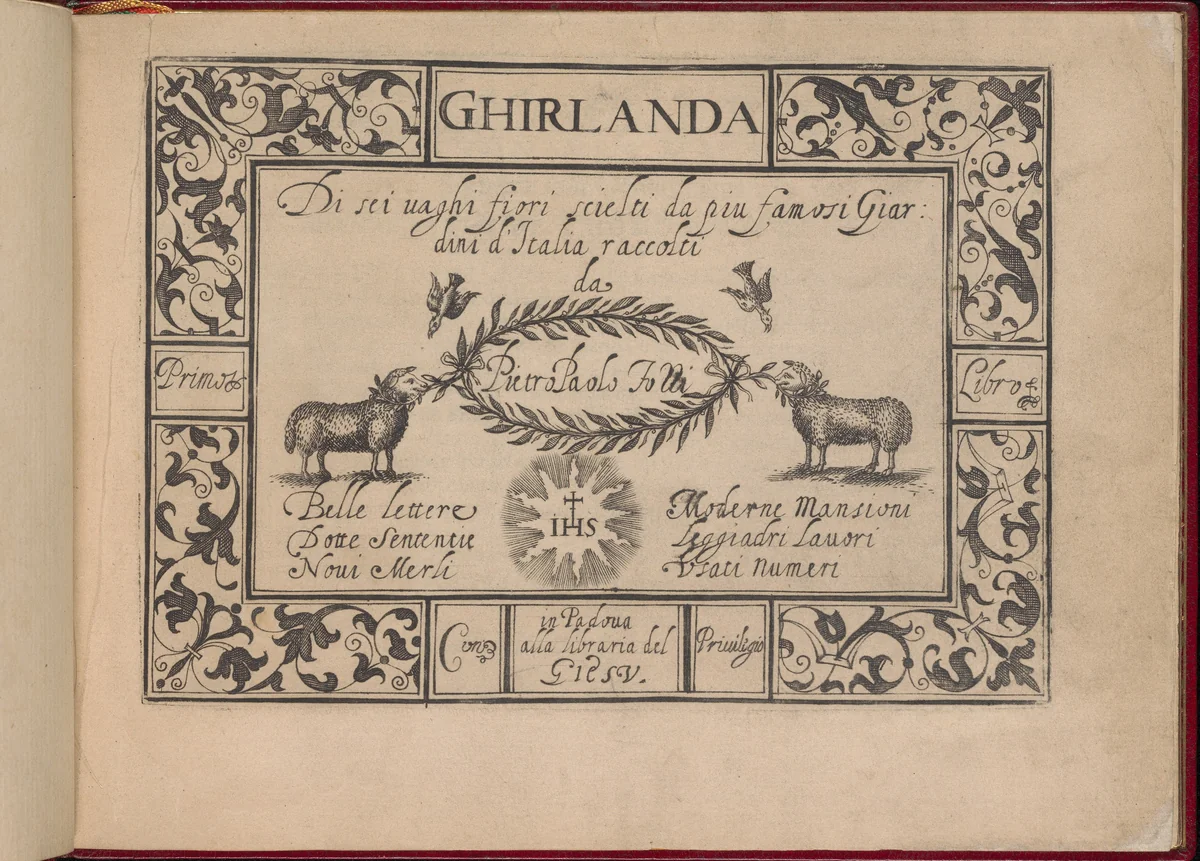 GHIRLANDA
Di sei uaghi fiori scielti da piu famosi Giar:
dini d'Italia raccolti
da
Pietro Paolo Tozzi
Primo
Libro
Belle lettere
Dotte Sententie
Noui Merli
IHS
Moderne Mansioni
Leggiadri Lauori
Vsati Numeri
Con
in Padoua
alla libraria del
GIESV.
Priuilegio